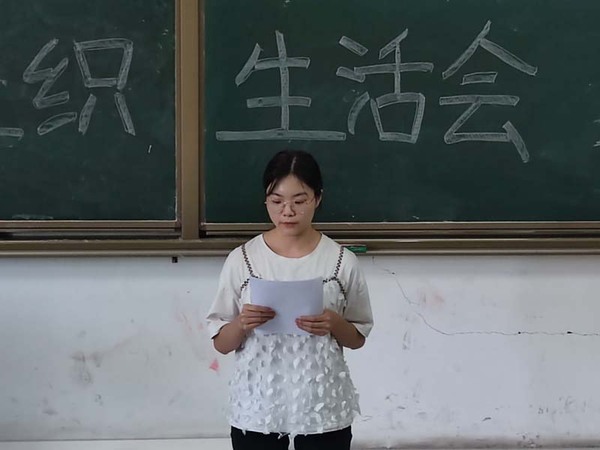 织 生活会